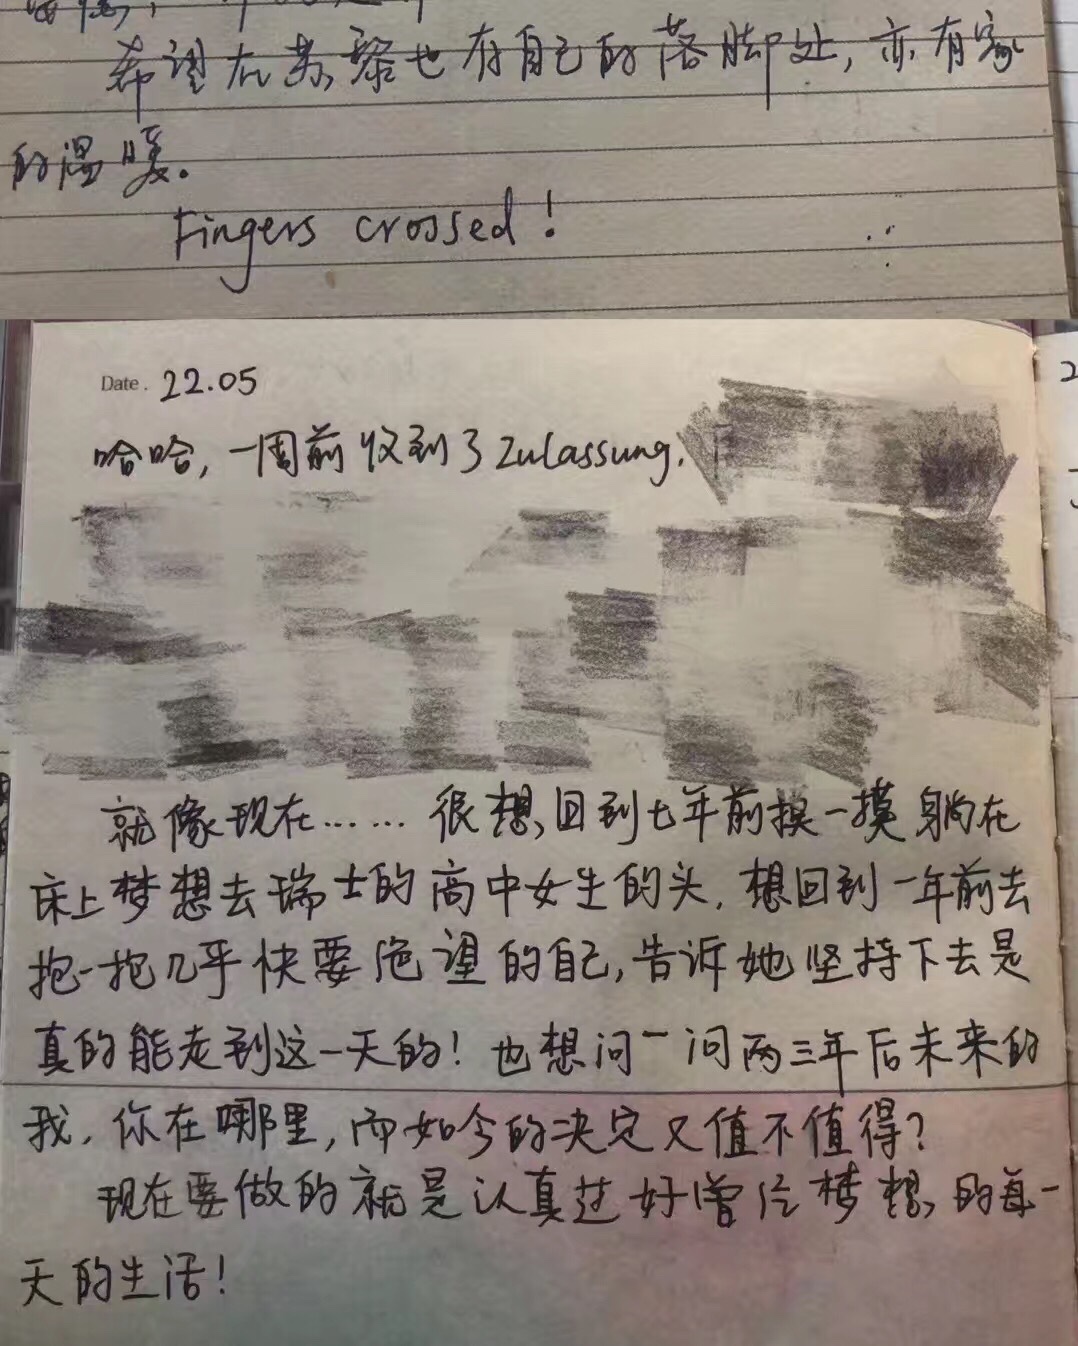 希望在苏黎也有自己的落脚处,亦有家
的温暖.
Fingers crossed!
Date. 22.05
哈哈,一周前收到了Zulassung.
就像现在…… 很想回到七年前摸一摸躺在
床上梦想去瑞士的高中女生的头.想回到一年前去
抱一抱几乎快要绝望的自己,告诉她坚持下去是
真的能走到这一天的!也想问一问两三年后未来的
我,你在哪里,而如今的决定又值不值得?
现在要做的就是认真过好曾经梦想的每一
天的生活!